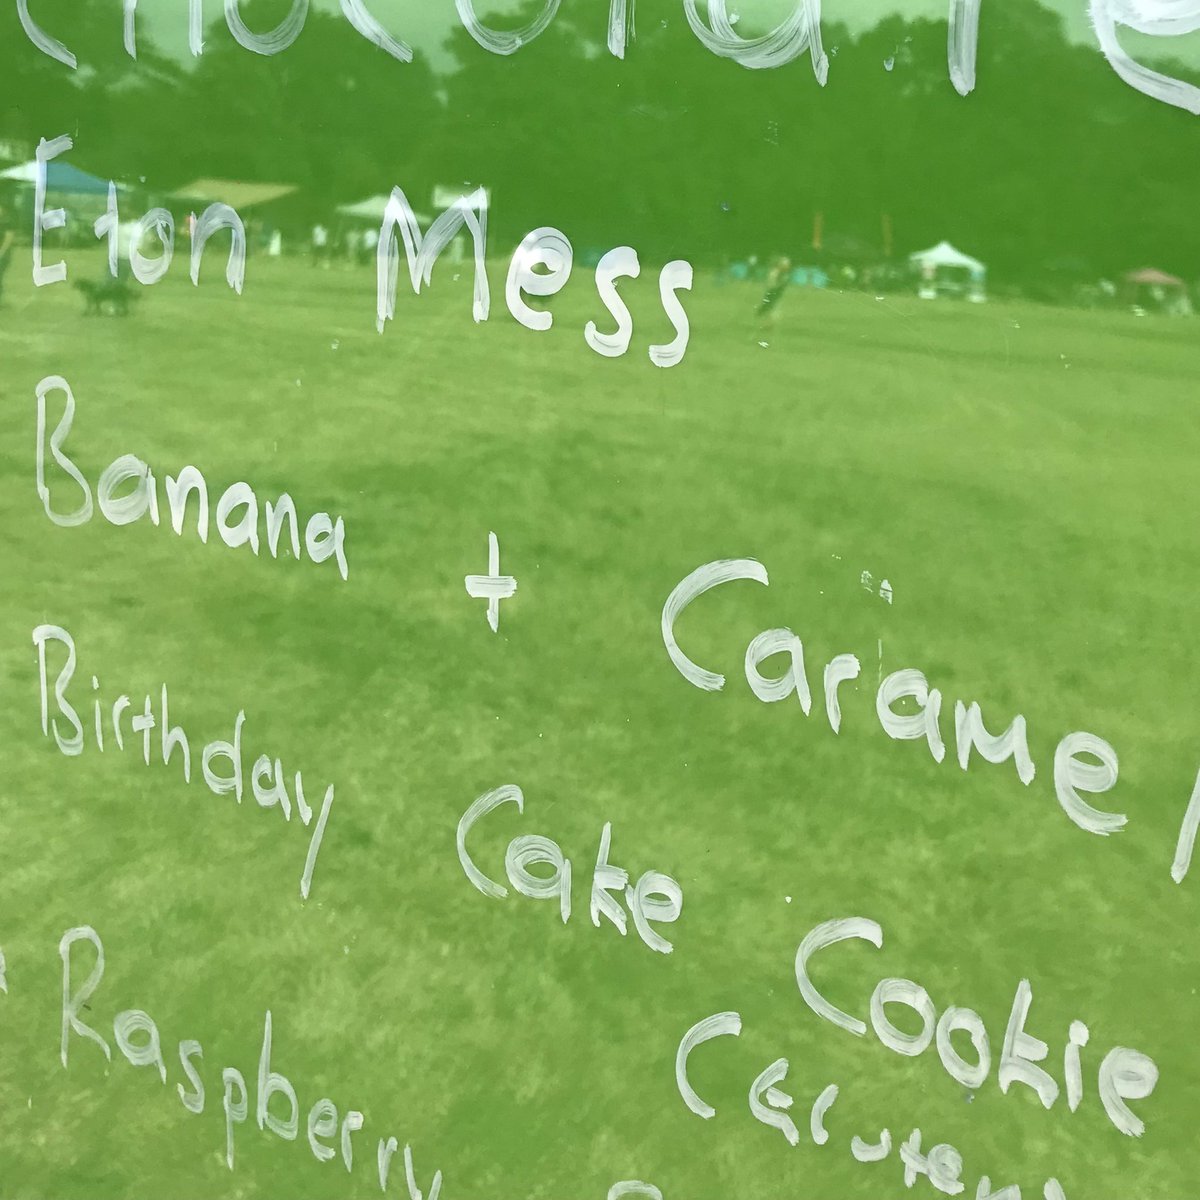 Chocolate
Eton Mess
Banana + Caramel
Birthday Cake Cookie
Raspberry